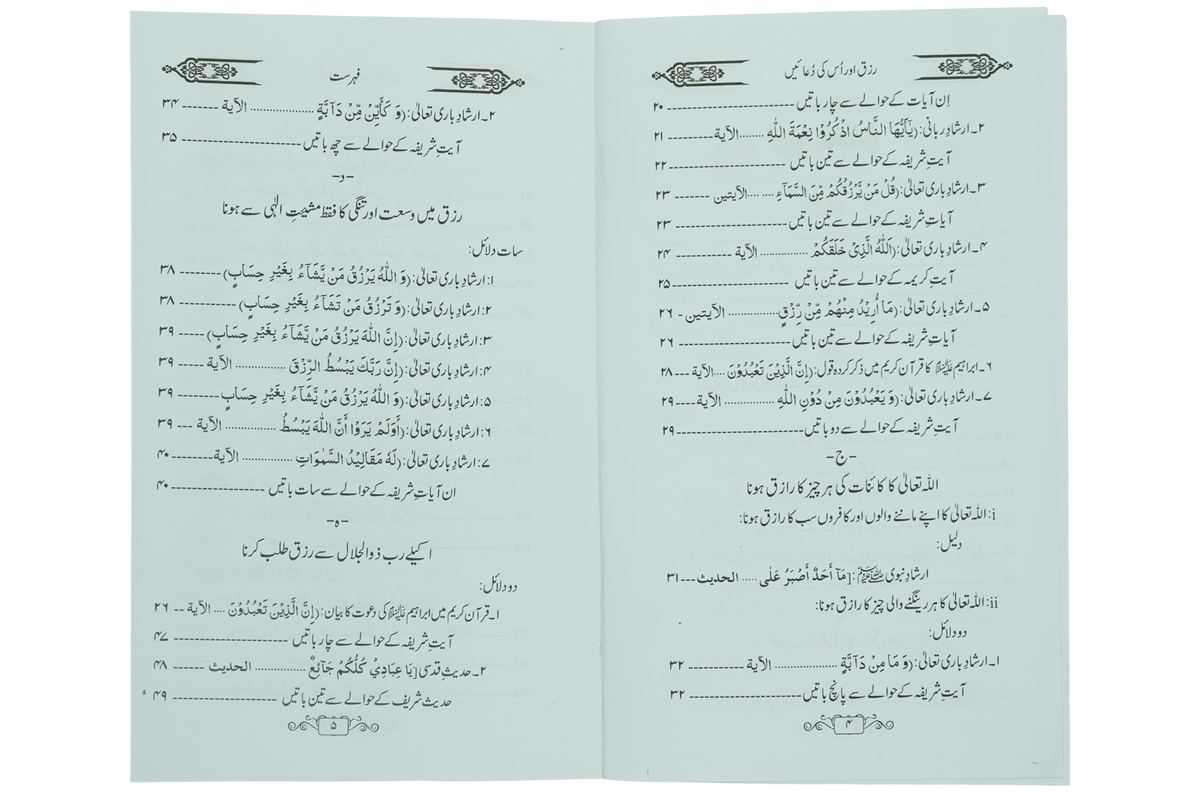 رزق اور اُس کی دُعائیں
اِن آیات کے حوالے سے چار باتیں ------------------------ ۲۰
۲۔ ارشادِ ربانی: (یٰٓاَیُّهَا النَّاسُ اذْكُرُوْا نِعْمَةَ اللّٰهِ ........ الآیة --------- ۲۱
آیتِ شریفہ کے حوالے سے تین باتیں ---------------------- ۲۲
۳۔ ارشادِ باری تعالیٰ: (قُلْ مَنْ يَّرْزُقُكُمْ مِّنَ السَّمَآءِ ........ الآیتین ------- ۲۳
آیات شریفہ کے حوالے سے تین باتیں ---------------------- ۲۳
۴۔ ارشادِ باری تعالیٰ: (اَللّٰهُ الَّذِيْ خَلَقَكُمْ ............... الآیة ----------- ۲۴
آیتِ کریمہ کے حوالے سے تین باتیں ---------------------- ۲۵
۵۔ ارشادِ باری تعالیٰ: (مَآ اُرِيْدُ مِنْهُمْ مِّنْ رِّزْقٍ ............... الآیتین - ۲۶
آیات شریفہ کے حوالے سے تین باتیں --------------------- ۲۶
۶۔ ابراہیم علیہ السلام کا قرآن کریم میں ذکر کردہ قول: (اِنَّ الَّذِيْنَ تَعْبُدُوْنَ .... الآیة --- ۲۸
۷۔ ارشادِ باری تعالیٰ: (وَ يَعْبُدُوْنَ مِنْ دُوْنِ اللّٰهِ ............... الآیة ---- ۲۹
آیتِ شریفہ کے حوالے سے دو باتیں ---------------------- ۲۹
-ج-
اللہ تعالیٰ کا کائنات کی ہر چیز کا رازق ہونا
i: اللہ تعالیٰ کا اپنے ماننے والوں اور کافروں سب کا رازق ہونا:
دلیل:
ارشادِ نبوی ﷺ: [مَآ أَحَدٌ أَصْبَرُ عَلٰی ..... الحدیث --- ۳۱
ii: اللہ تعالیٰ کا ہر رینگنے والی چیز کا رازق ہونا:
دو دلائل:
۱۔ ارشادِ باری تعالیٰ: (وَ مَا مِنْ دَآبَّةٍ .................. الآیة -------------- ۳۲
آیتِ شریفہ کے حوالے سے پانچ باتیں --------------------- ۳۲
۴
فہرست
۲۔ ارشادِ باری تعالیٰ: (وَ كَاَيِّنْ مِّنْ دَآبَّةٍ .................. الآیة ------- ۳۴
آیتِ شریفہ کے حوالے سے چھ باتیں --------------------- ۳۵
-د-
رزق میں وسعت اور تنگی کا فقط مشیتِ الٰہی سے ہونا
سات دلائل:
۱: ارشادِ باری تعالیٰ: (وَ اللّٰهُ يَرْزُقُ مَنْ يَّشَآءُ بِغَيْرِ حِسَابٍ) -------- ۳۸
۲: ارشادِ باری تعالیٰ: (وَ تَرْزُقُ مَنْ تَشَآءُ بِغَيْرِ حِسَابٍ) ----------- ۳۸
۳: ارشادِ باری تعالیٰ: (اِنَّ اللّٰهَ يَرْزُقُ مَنْ يَّشَآءُ بِغَيْرِ حِسَابٍ) ----- ۳۹
۴: ارشادِ باری تعالیٰ: (اِنَّ رَبَّكَ يَبْسُطُ الرِّزْقَ ............... الآیة ----- ۳۹
۵: ارشادِ باری تعالیٰ: (وَ اللّٰهُ يَرْزُقُ مَنْ يَّشَآءُ بِغَيْرِ حِسَابٍ --------- ۳۹
۶: ارشادِ باری تعالیٰ: (أَوَلَمْ يَرَوْا أَنَّ اللّٰهَ يَبْسُطُ ............... الآیة --- ۳۹
۷: ارشادِ باری تعالیٰ: (لَهٗ مَقَالِيْدُ السَّمٰوَاتِ ............... الآیة -------- ۴۰
ان آیات شریفہ کے حوالے سے سات باتیں ---------------- ۴۰
-ہ-
اکیلے رب ذوالجلال سے رزق طلب کرنا
دو دلائل:
۱۔ قرآن کریم میں ابراہیم علیہ السلام کی دعوت کا بیان: (اِنَّ الَّذِيْنَ تَعْبُدُوْنَ .... الآیة -- ۲۶
آیتِ شریفہ کے حوالے سے چار باتیں -------------------- ۴۷
۲۔ حدیثِ قدسی [يَا عِبَادِيْ كُلُّكُمْ جَآئِعٌ ............... الحدیث ------ ۴۸
حدیث شریف کے حوالے سے تین باتیں ------------------- ۴۹
۵